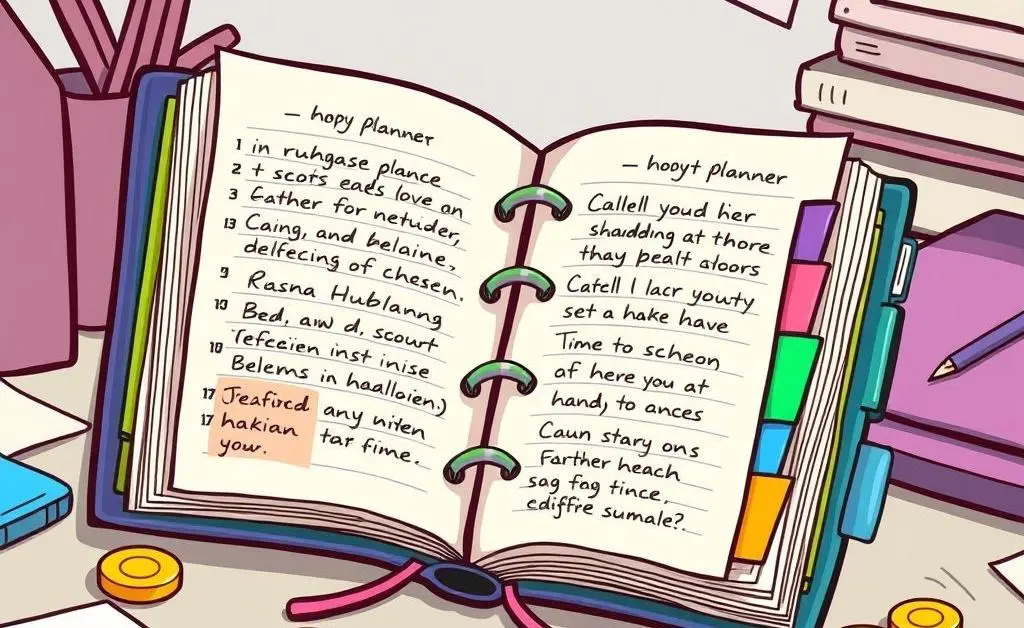 — hopy planner
1 in ruhgase plance
2 + scots eads love an
3 Eather for netuder,
13 Caing, and belaine,
delfecing of chesen.
9 Rasna Hublanng
13 Bed, aw d. scourt
Tefceien inst inise
10 Belems in haalloien.)
17 Jeafircd any niten
17 hakian tar fime.
your.
— hooyt planner
Callell youd her
shaudding at thore
thay pealt aloors
Catell I lacr yowty
set a hake have
Time to scheon
af here you at
hand, to ances
Caun stary ons
Farther heach
sag fog tince,
ediffre sumale?.